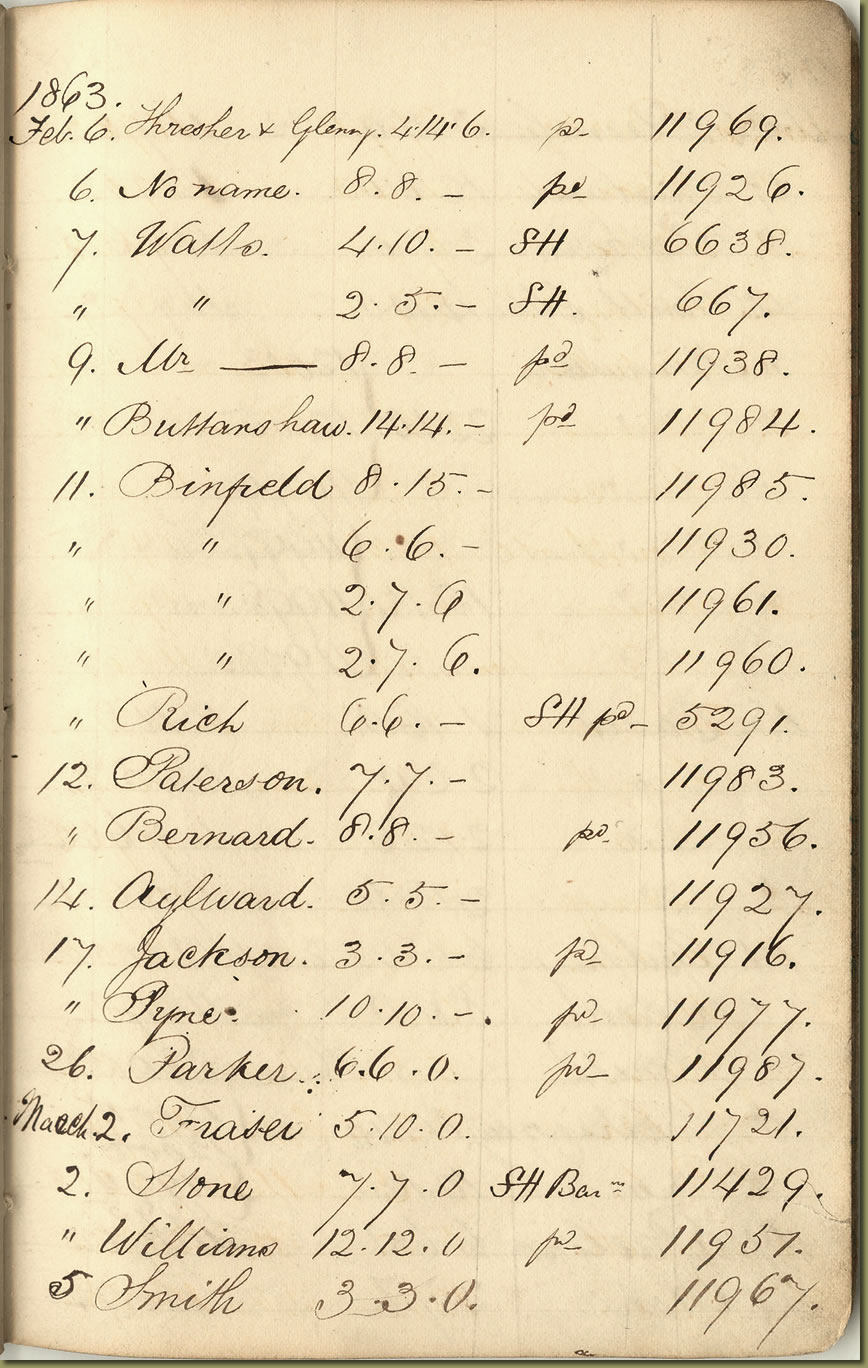 1863.
Feb. 6. Thresher & Glenny. 4.14.6. pd 11969.
6. No name. 8.8. – pd 11926.
7. Watts. 4.10. – SH 6638.
" " 2.5. – SH. 667.
9. Mr —— 8.8. – pd 11938.
" Buttanshaw. 14.14. – pd 11984.
11. Binfield 8.15. – 11985.
" " 6.6. – 11930.
" " 2.7.6 11961.
" " 2.7.6. 11960.
" Rich 6.6. – SH pd – 5291.
12. Paterson. 7.7. – 11983.
" Bernard. 8.8. – pd. 11956.
14. Aylward. 5.5. – 11927.
17. Jackson. 3.3. – pd 11916.
" Pyne. 10.10. –. pd 11977.
26. Parker. 6.6.0. pd 11987.
March. 2. Fraser 5.10.0. 11721.
2. Stone 7.7.0 SH 11429.
" Williams 12.12.0 pd 11951.
5 Smith 3.3.0. 11967.